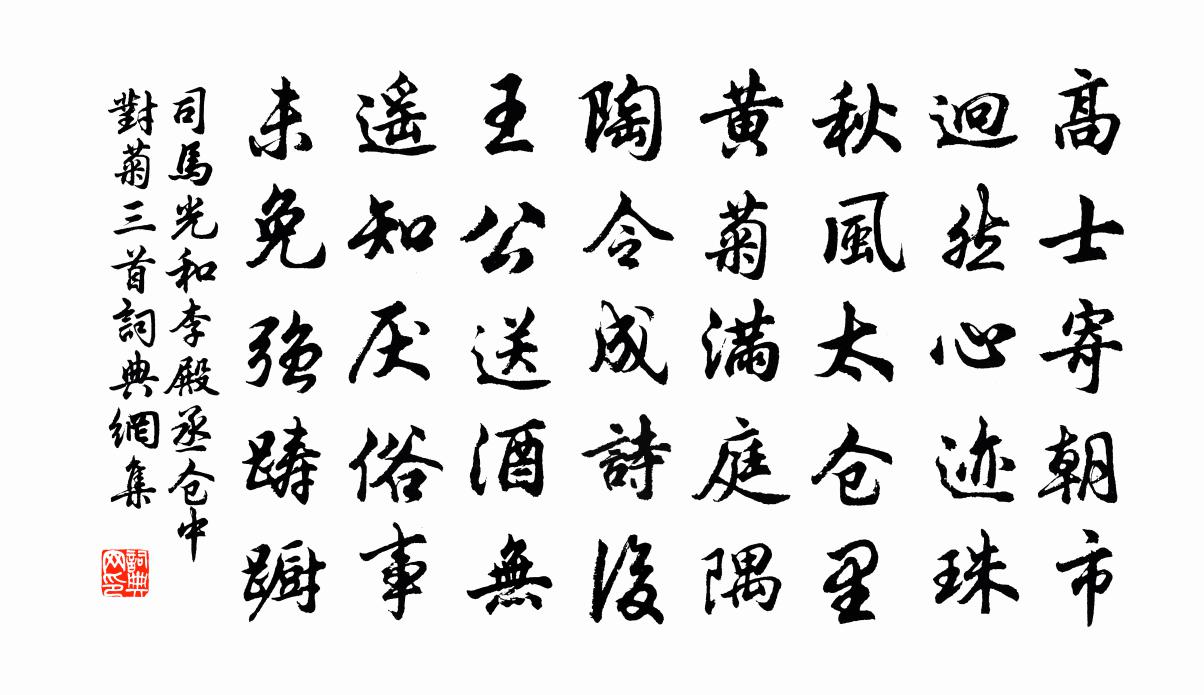 高士寄朝市
迥然心迹珠
秋風太仓里
黄菊滿庭隅
陶令成詩後
王公送酒無
遥知厌俗事
未免強踌蹰
司馬光和李殿丞仓中
對菊三首詞典網集
詞典网印